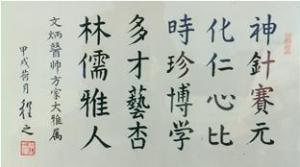 神針賽元
化仁心比
時珍博学
多才藝杏
林儒雅人
文炳醫师方家大雅属
甲戌荷月
程之